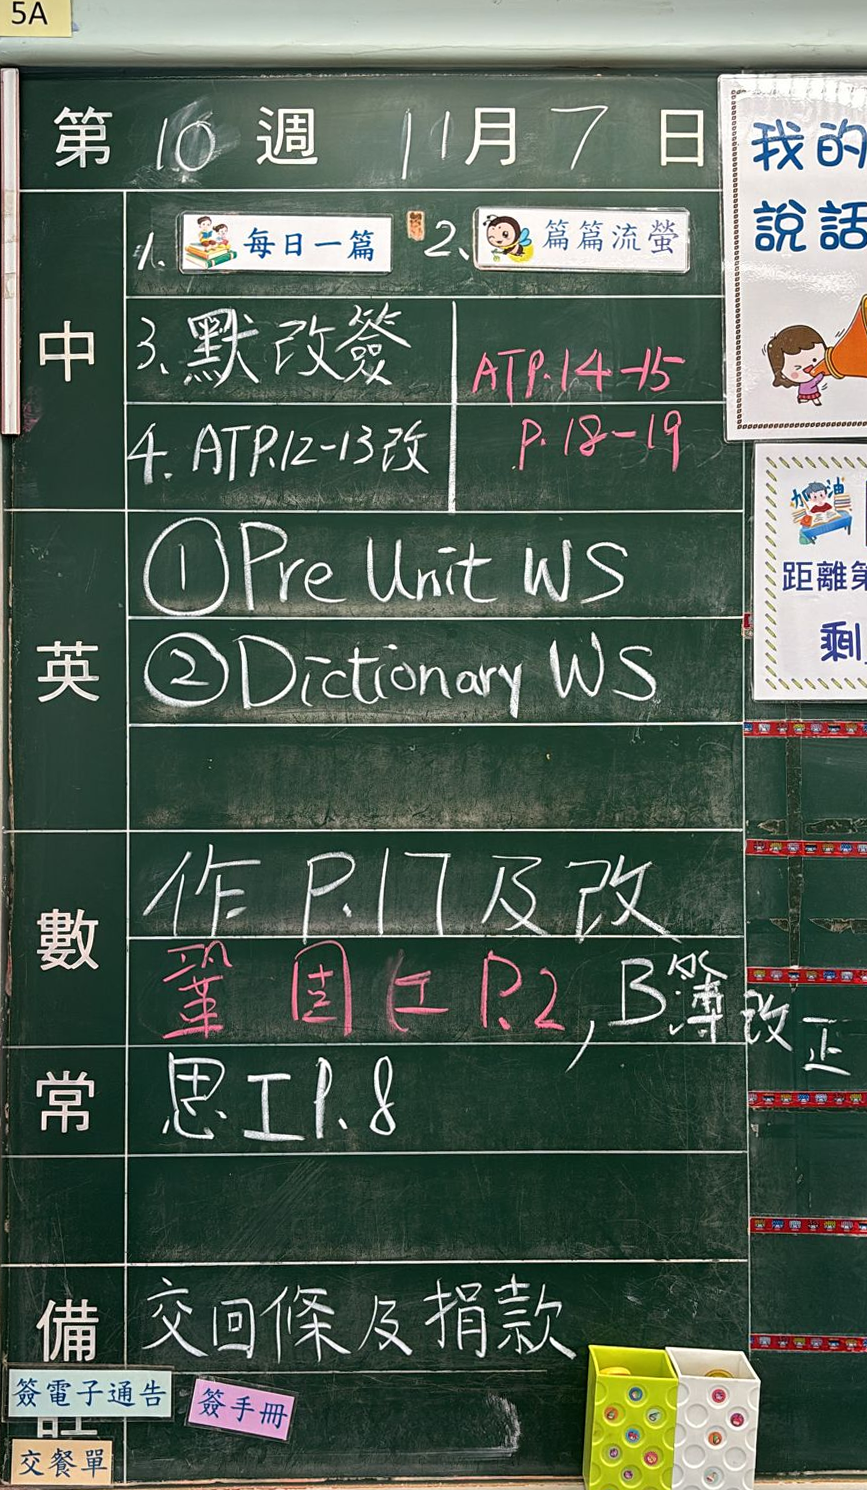 5A
第 10 週 11月 7 日
中
1. 每日一篇 2、篇篇流螢
3、默改簽
ATP.14-15
4. ATP.12-13改
P.18-19
英
① Pre Unit WS
② Dictionary WS
數
作 P.17 及改
鞏固工 P.2, B簿改正
常
思工P.8
備註
交回條及捐款
簽電子通告
簽手冊
交餐單
我的
說話
加油
距離第
剩